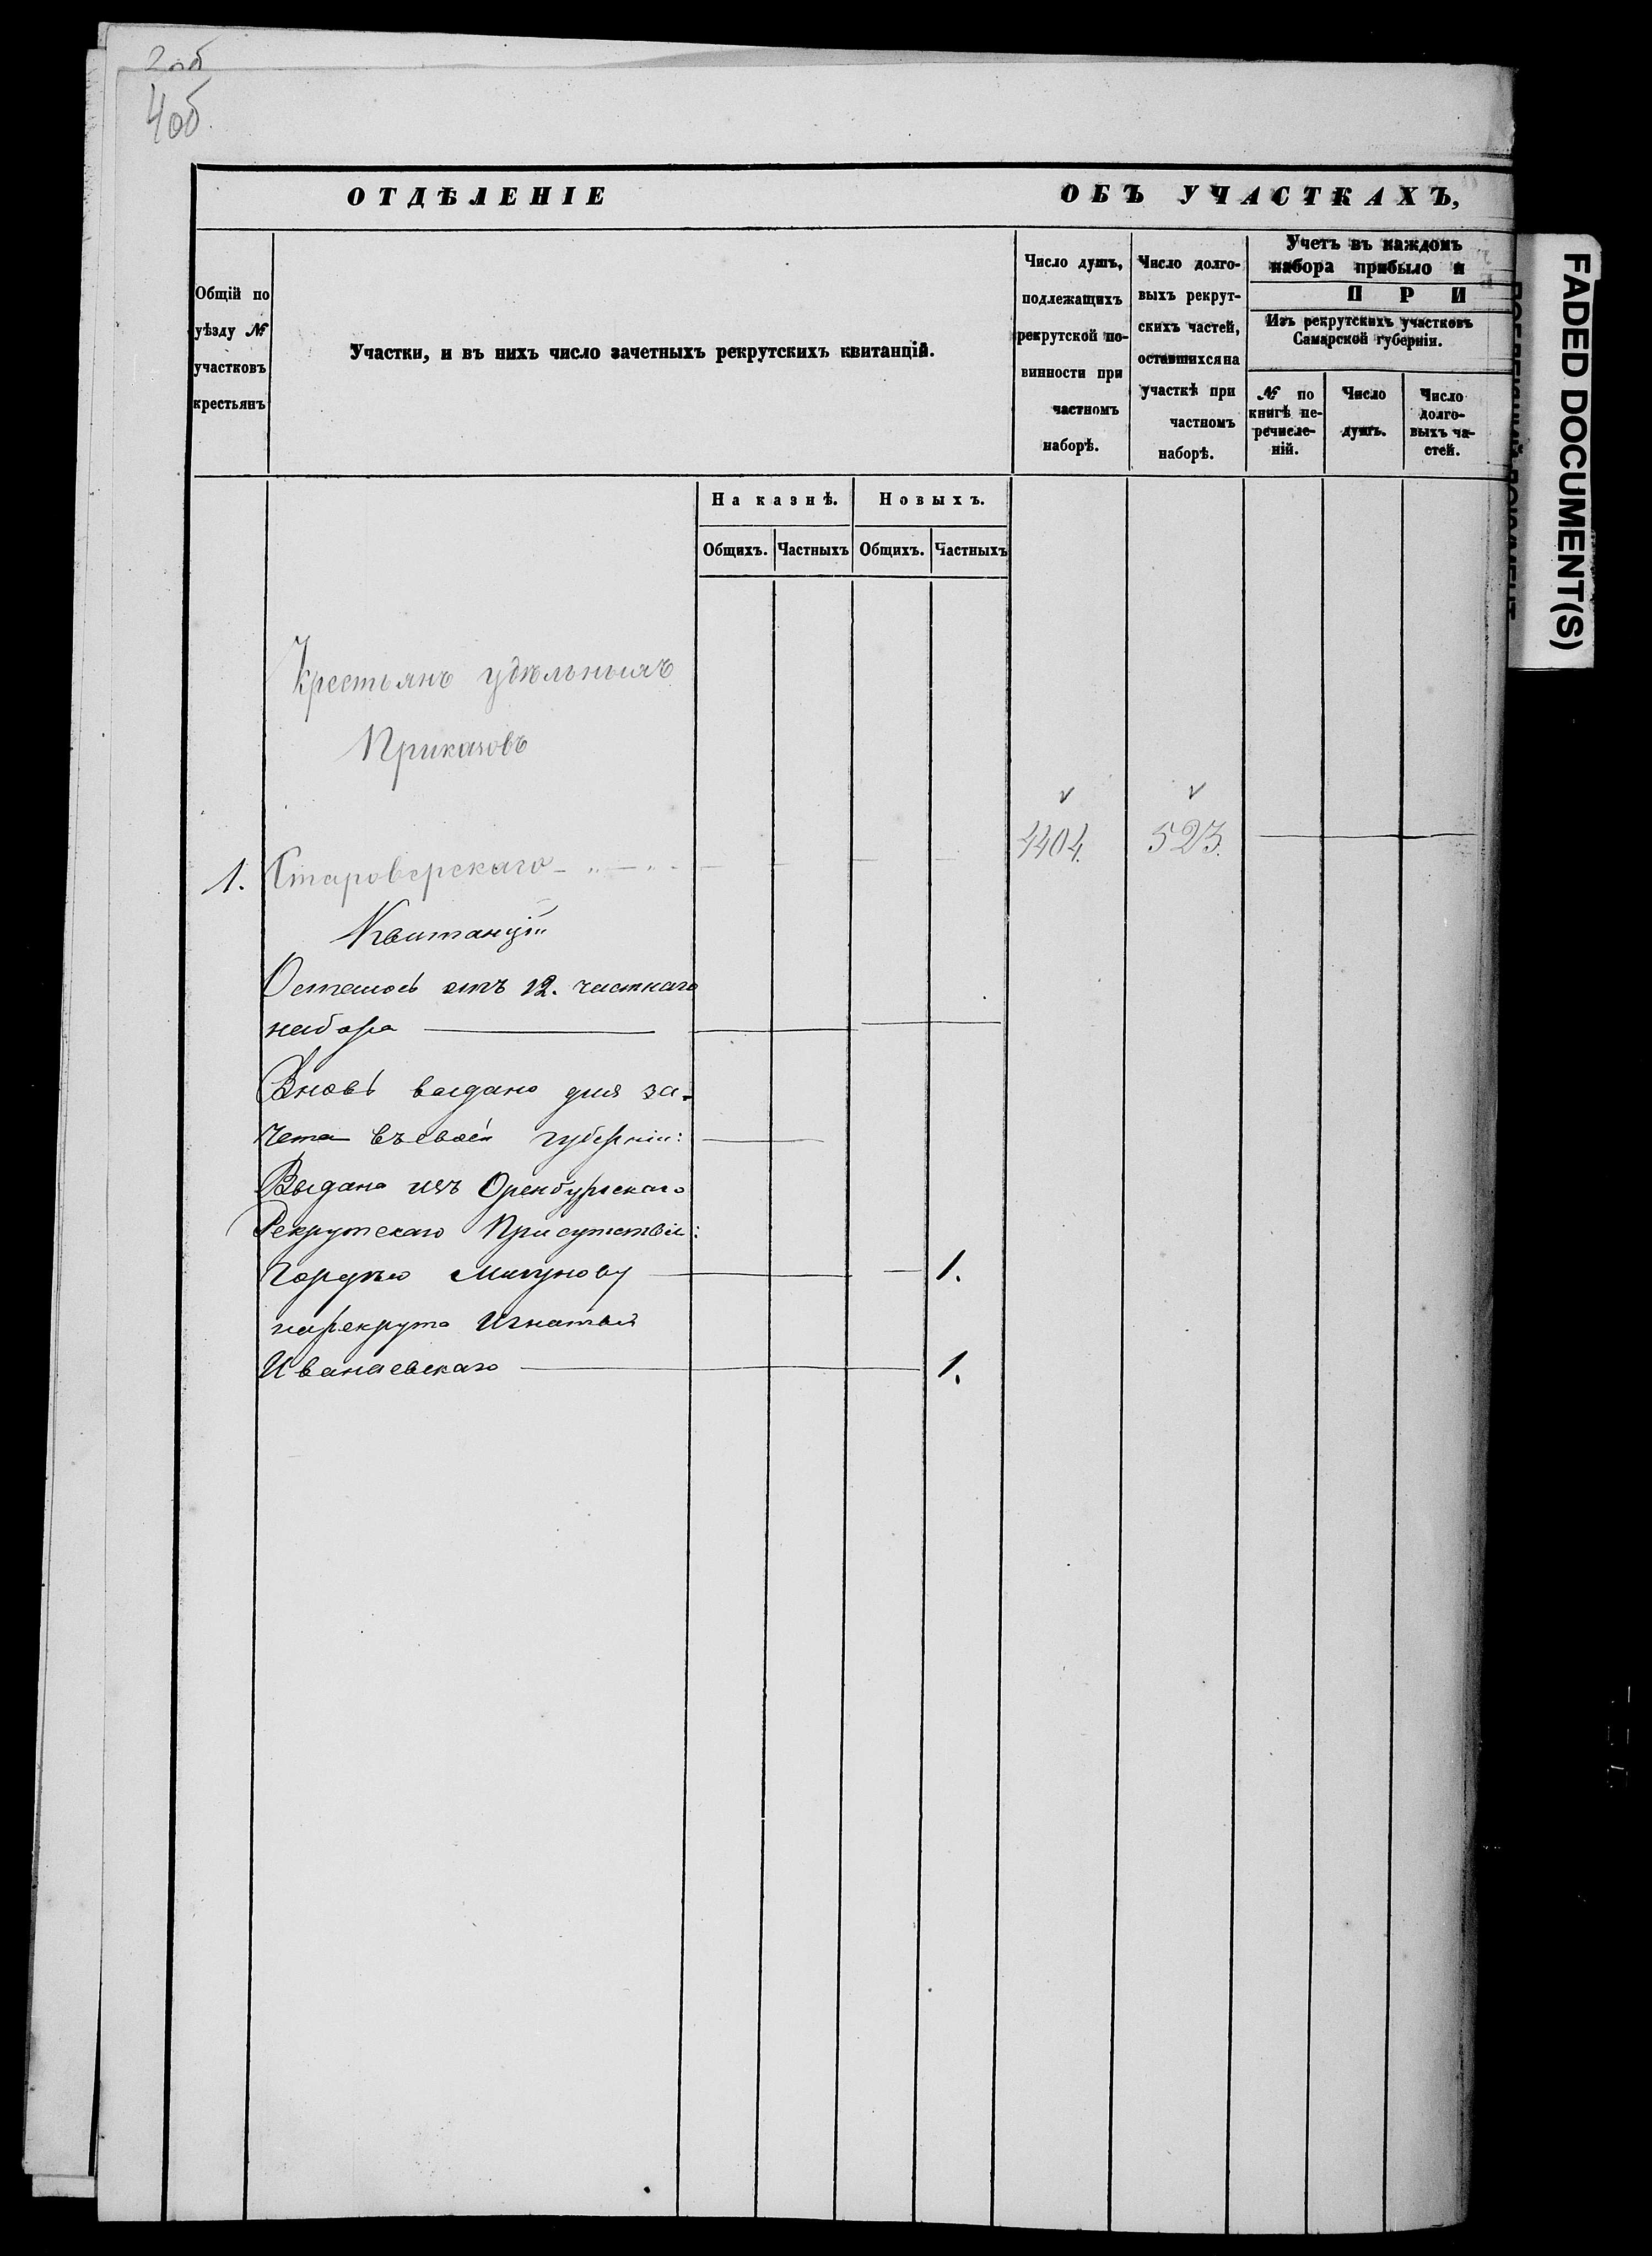 2об
4об.
ОТДѢЛЕНІЕ ОБЪ УЧАСТКАХЪ,
Общій по
уѣзду №
участковъ
крестьянъ
Участки, и въ нихъ число зачетныхъ рекрутскихъ квитанцій.
Число душъ,
подлежащихъ
рекрутской по-
винности при
частномъ
наборѣ.
Число долго-
выхъ рекрут-
скихъ частей,
оставшихся на
участкѣ при
частномъ
наборѣ.
Учетъ въ каждомъ
набора прибыло и
ПРИ
Изъ рекрутскихъ участковъ
Самарской губерніи.
№ по
книгѣ пе-
речисле-
ній.
Число
душъ.
Число
долго-
выхъ ча-
стей.
На казнѣ. Новыхъ.
Общихъ. Частныхъ Общихъ. Частныхъ
Крестьянъ удѣльныхъ
Приказовъ
1. Староверскаго 4404. 523.
Квитанціи
Осталось отъ 12. частнаго
набора
Вновь выдано для за-
чета въ своей губерніи:
Выдано изъ Оренбургскаго
Рекрутскаго Присутствія:
Гордѣю 1.
за рекрута Игнатья
Иванаевскаго 1.
FADED DOCUMENT(S)